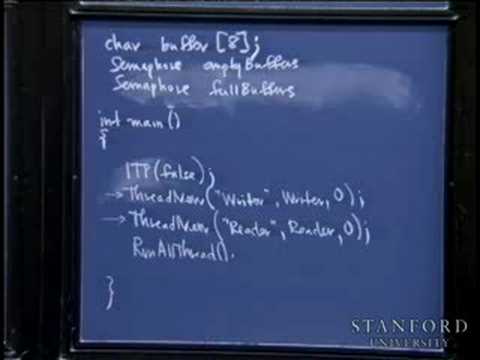 char buffer [8];
Semaphore emptyBuffers
Semaphore fullBuffers
int main()
{
ITP(false);
→ ThreadNew("Writer", Writer, 0);
→ ThreadNew("Reader", Reader, 0);
RunAllThread().
}
STANFORD
UNIVERSITY